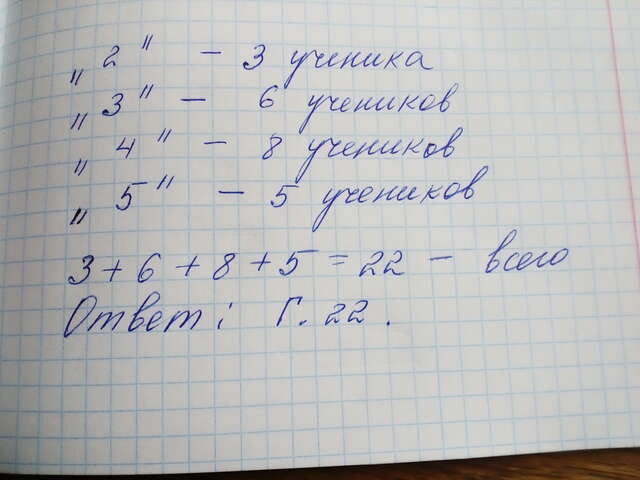 „ 2 " - 3 ученика
„ 3 " - 6 учеников
„ 4 " - 8 учеников
„ 5 " - 5 учеников
3 + 6 + 8 + 5 = 22 - всего
Ответ: Г. 22.